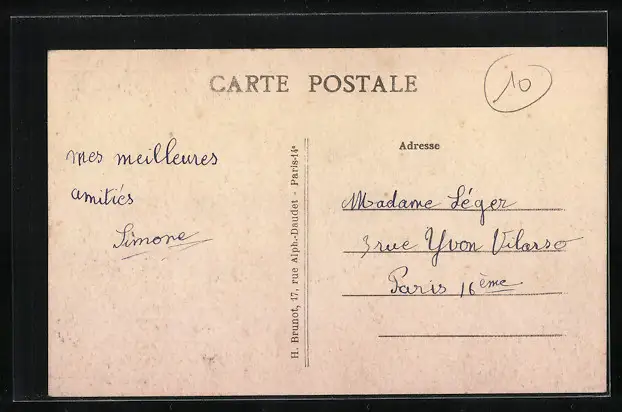 CARTE POSTALE
10
mes meilleures
amitiés
Simone
H. Brunot, 17, rue Alph.-Daudet - Paris-14e
Adresse
Madame Léger
3 rue Yvon Vilarso
Paris 16ème